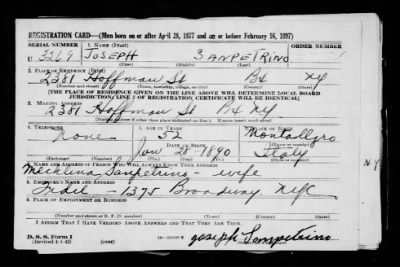 REGISTRATION CARD—(Men born on or after April 28, 1877 and on or before February 16, 1897)
SERIAL NUMBER 1. NAME (Print)
U 3269 JOSEPH SANPETRINO
2. PLACE OF RESIDENCE (Print)
2351 Hoffman St Bx NY
(Number and street) (Town, township, village, or city) (County) (State)
[THE PLACE OF RESIDENCE GIVEN ON THE LINE ABOVE WILL DETERMINE LOCAL BOARD
JURISDICTION; LINE 2 OF REGISTRATION CERTIFICATE WILL BE IDENTICAL]
3. MAILING ADDRESS
2351 Hoffman St Bx NY
[Mailing address if other than place indicated on line 2. If same insert word same]
4. TELEPHONE 5. AGE IN YEARS 6. PLACE OF BIRTH
none 52 Montallgro
DATE OF BIRTH
Jan 21 1890 Italy
(Exchange) (Number) (Mo.) (Day) (Yr.) (State or country)
7. NAME AND ADDRESS OF PERSON WHO WILL ALWAYS KNOW YOUR ADDRESS
Sanpetrino - wife
8. EMPLOYER'S NAME AND ADDRESS
- 1375 Broadway NYC
9. PLACE OF EMPLOYMENT OR BUSINESS
(Number and street or R. F. D. number) (Town) (County) (State)
I AFFIRM THAT I HAVE VERIFIED ABOVE ANSWERS AND THAT THEY ARE TRUE.
D. S. S. Form 1
(Revised 4-1-42) Joseph Sanpetrino